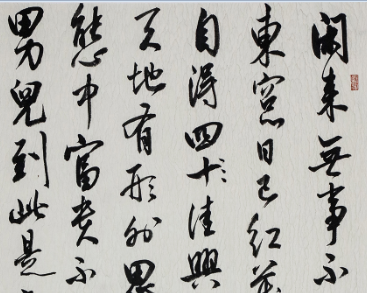 闲来無事不
東窓日已红萬
自得四时佳興
天地有形外思
態中富贵不
男兒到此是